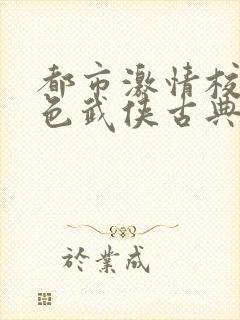 都市激情校
色武侠古典
於業成